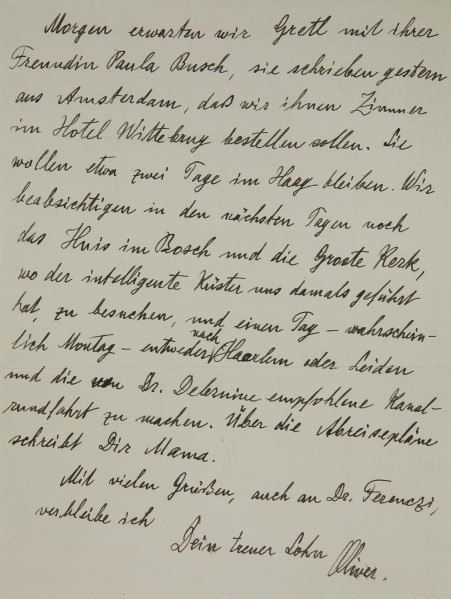 Morgen erwarten wir Gretl mit ihrer
Freundin Paula Busch, sie schrieben gestern
aus Amsterdam, daß wir ihnen Zimmer
im Hotel Wittebrug bestellen sollen. Sie
wollen etwa zwei Tage im Haag bleiben. Wir
beabsichtigen in den nächsten Tagen noch
das Huis im Bosch und die Groote Kerk,
wo der intelligente Küster uns damals geführt
hat, zu besuchen, und einen Tag – wahrschein-
lich Montag – entweder nach Haarlem oder Leiden
und die von Dr. empfohlene Kanal-
rundfahrt zu machen. Über die Abreisepläne
schreibt Dir Mama.
Mit vielen Grüßen, auch an Dr. Ferenczi,
verbleibe ich
Dein treuer Sohn
Oliver.